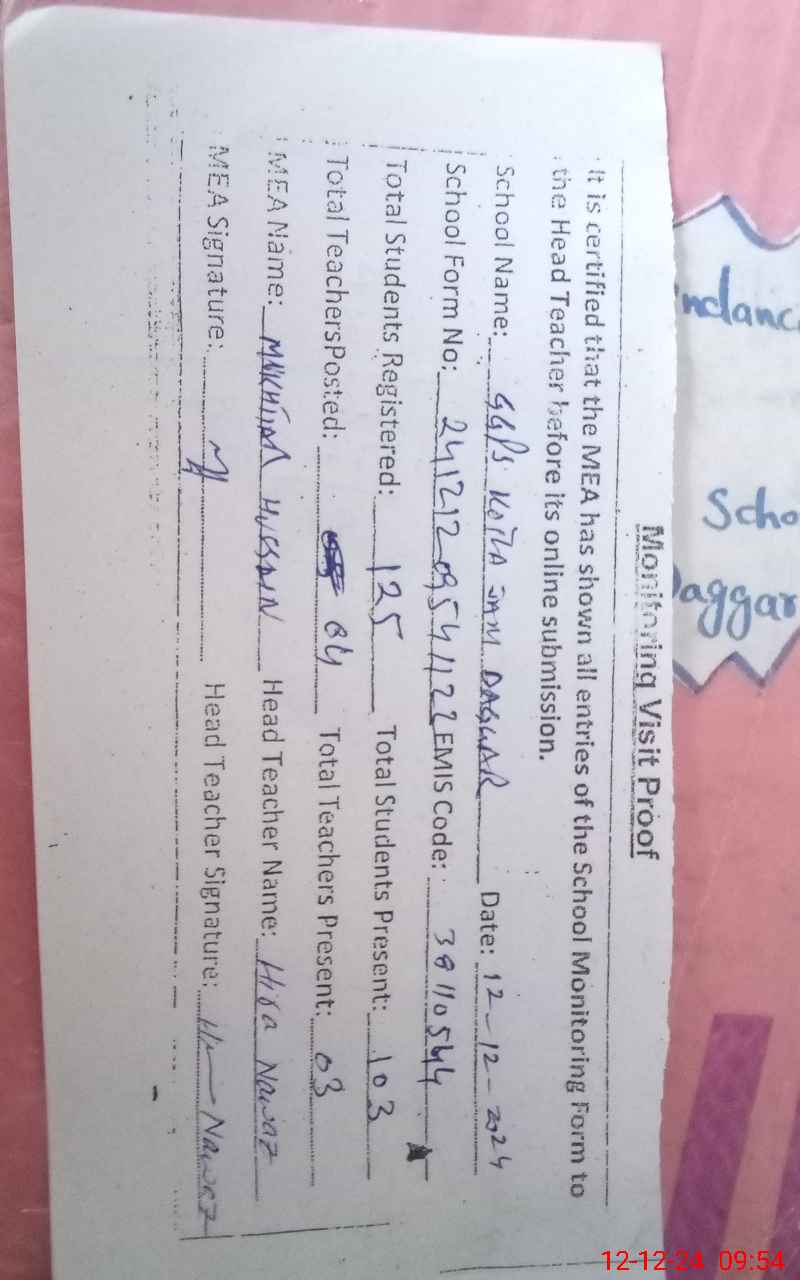 Monitoring Visit Proof
It is certified that the MEA has shown all entries of the School Monitoring Form to
the Head Teacher before its online submission.
School Name: GGPS KOTLA JAM DAGGAR Date: 12-12-2024
School Form No: 24121209541122 EMIS Code: 38110544
Total Students Registered: 125 Total Students Present: 103
Total TeachersPosted: 04 Total Teachers Present: 03
MEA Name: MUKHTIAR HUSSAIN Head Teacher Name: Hira Nawaz
MEA Signature: Head Teacher Signature: Nawaz
ndanc
Scho
Daggar
12-12-24 09:54